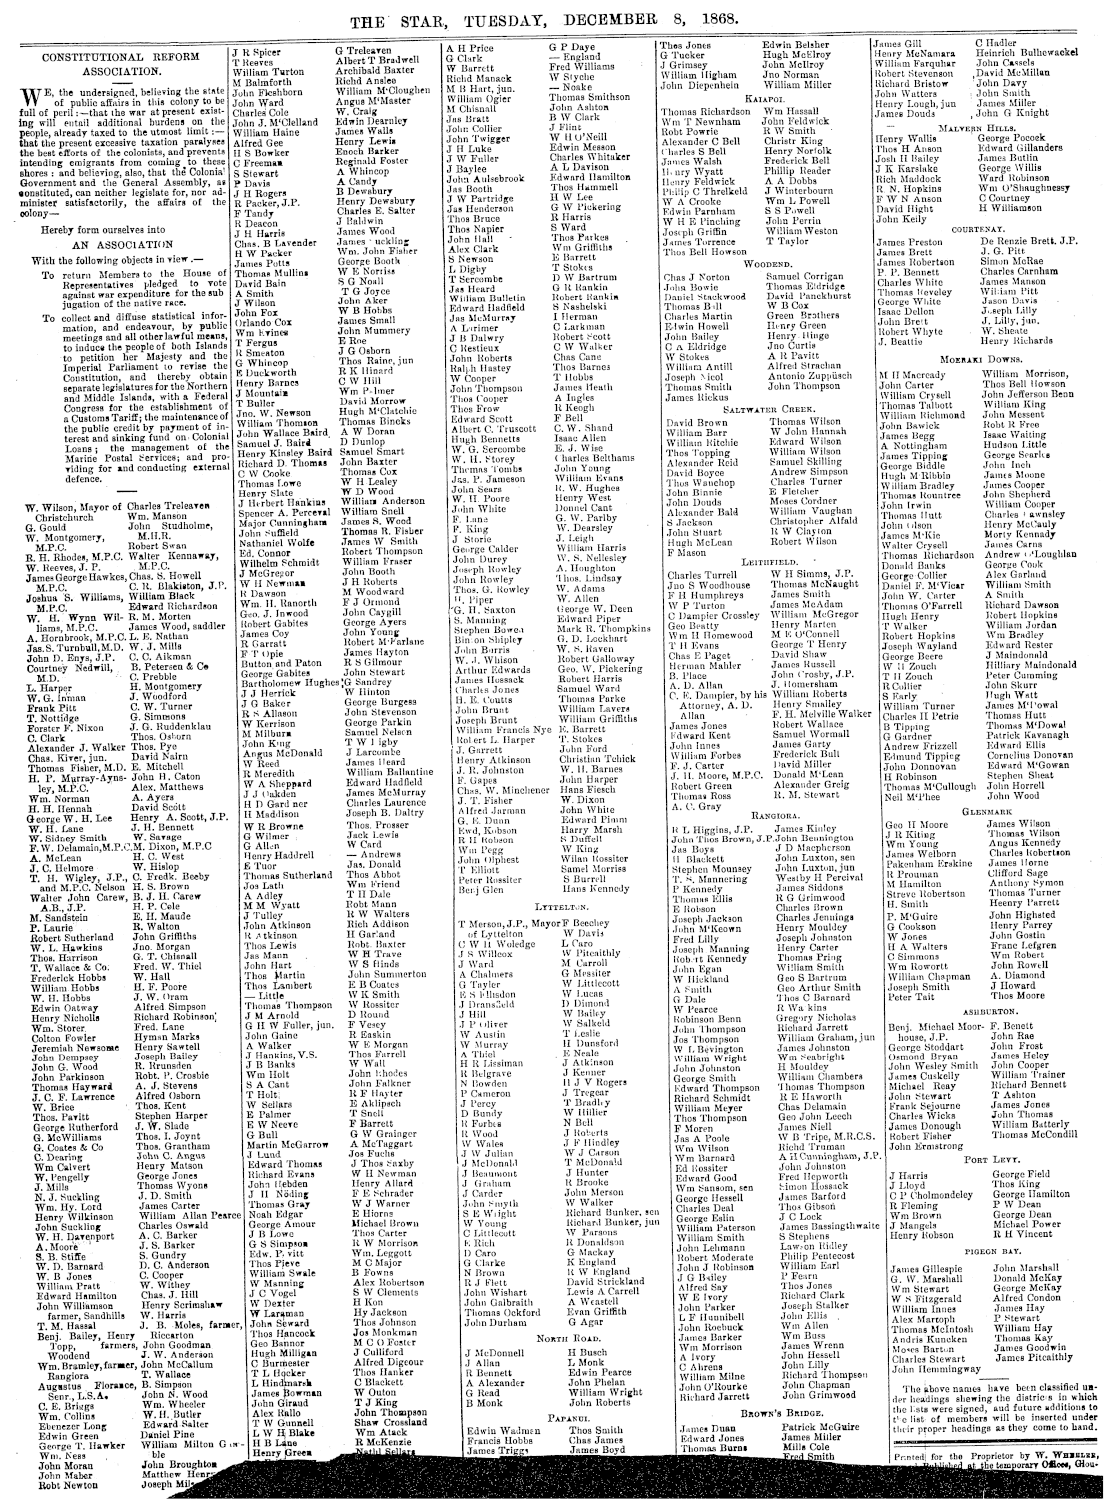 THE STAR, TUESDAY, DECEMBER 8, 1868.
CONSTITUTIONAL REFORM
ASSOCIATION.
WE, the undersigned, believing the state
of public affairs in this colony to be
full of peril:—that the war at present exist-
ing will entail additional burdens on the
people, already taxed to the utmost limit:—
that the present excessive taxation paralyses
the best efforts of the colonists, and prevents
intending emigrants from coming to these
shores: and believing, also, that the Colonial
Government and the General Assembly, as
constituted, can neither legislate for, nor ad-
minister satisfactorily, the affairs of the
colony—
Hereby form ourselves into
AN ASSOCIATION
With the following objects in view.—
To return Members to the House of
Representatives pledged to vote
against war expenditure for the sub
jugation of the native race.
To collect and diffuse statistical infor-
mation, and endeavour, by public
meetings and all other lawful means,
to induce the people of both Islands
to petition her Majesty and the
Imperial Parliament to revise the
Constitution, and thereby obtain
separate legislatures for the Northern
and Middle Islands, with a Federal
Congress for the establishment of
a Customs Tariff; the maintenance of
the public credit by payment of in-
terest and sinking fund on Colonial
Loans; the management of the
Marine Postal Services; and pro-
viding for and conducting external
defence.
W. Wilson, Mayor of
Christchurch
G. Gould
W. Montgomery,
M.P.C.
R. H. Rhodes, M.P.C.
W. Reeves, J. P.
James George Hawkes,
M.P.C.
Joshua S. Williams,
M.P.C.
W. H. Wynn Wil-
liams, M.P.C.
A. Hornbrook, M.P.C.
Jas. S. Turnbull, M.D.
John D. Enys, J.P.
Courtney Nedwill,
M.D.
L. Harper
W. G. Inman
Frank Pitt
T. Nottidge
Forster F. Nixon
C. Clark
Alexander J. Walker
Chas. Kiver, jun.
Thomas Fisher, M.D.
H. P. Murray-Ayns-
ley, M.P.C.
Wm. Norman
H. H. Hennah
George W. H. Lee
W. H. Lane
W. Sidney Smith
F. W. Delamain, M.P.C.
A. McLean
J. C. Helmore
T. H. Wigley, J.P.,
and M.P.C. Nelson
Walter John Carew,
A.B., J.P.
M. Sandstein
P. Laurie
Robert Sutherland
W. L. Hawkins
Thos. Harrison
T. Wallace & Co.
Frederick Hobbs
William Hobbs
W. H. Hobbs
Edwin Oatway
Henry Nicholls
Wm. Storer
Colton Fowler
Jeremiah Newsome
John Dempsey
John G. Wood
John Parkinson
Thomas Hayward
J. C. F. Lawrence
W. Brice
Thos. Pavitt
George Rutherford
G. McWilliams
G. Coates & Co
C. Dearing
Wm Calvert
W. Pengelly
J. Mills
N. J. Suckling
Wm. Hy. Lord
Henry Wilkinson
John Suckling
W. H. Davenport
A. Moore
S. B. Stiffe
W. D. Barnard
W. B Jones
William Pratt
Edward Hamilton
John Williamson
farmer, Sandhills
T. M. Hassal
Benj. Bailey, Henry
Topp, farmers,
Woodend
Wm. Bramley, farmer,
Rangiora
Augustus Florance,
Senr., L.S.A.
C. E. Briggs
Wm. Collins
Ebenezer Long
Edwin Green
George T. Hawker
Wm. Ness
John Moran
John Maber
Robt Newton
Charles Treleaven
Wm. Manson
John Studholme,
M.H.R.
Robert Swan
Walter Kennaway,
M.P.C.
Chas. S. Howell
C. R. Blakiston, J.P.
William Black
Edward Richardson
R. M. Morten
James Wood, saddler
L. E. Nathan
W. J. Mills
C. C. Aikman
B. Petersen & Co
C. Prebble
H. Montgomery
J. Woodford
C. W. Turner
G. Simmons
J. G. Ruddenklau
Thos. Osborn
Thos. Pye
David Nairn
E. Mitchell
John H. Caton
Alex. Matthews
A. Ayers
David Scott
Henry A. Scott, J.P.
J. H. Bennett
W. Savage
M. Dixon, M.P.C
H. C. West
W. Hislop
C. Fredk. Beeby
H. S. Brown
B. J. H. Carew
H. P. Cele
E. H. Maude
R. Walton
John Griffiths
Jno. Morgan
G. T. Chisnall
Fred. W. Thiel
W. Hall
H. F. Poore
J. W. Oram
Alfred Simpson
Richard Robinson
Fred. Lane
Hyman Marks
Henry Sawtell
Joseph Bailey
R. Brunsden
Robt. P. Crosbie
A. J. Stevens
Alfred Osborn
Thos. Kent
Stephen Harper
J. W. Slade
Thos. I. Joynt
Thos. Grantham
John C. Angus
Henry Matson
George Jones
Thomas Wyons
J. D. Smith
James Carter
William Allan Pearce
Charles Oswald
A. C. Barker
J. S. Barker
S. Gundry
D. C. Anderson
C. Cooper
W. Withey
Chas. J. Hill
Henry Scrimshaw
W. Harris
J. B. Moles, farmer,
Riccarton
John Goodman
J. W. Anderson
John McCallum
T. Wallace
B. Simpson
John N. Wood
Wm. Wheeler
W. H. Butler
Edward Salter
Daniel Pine
William Milton
John Broughton
J R Spicer
T Reeves
William Turton
M Balmforth
John Fleshborn
John Ward
Charles Cole
John J. M'Clelland
William Haine
Alfred Gee
H S Bowker
C Freeman
S Stewart
P Davis
J H Rogers
R Packer, J.P.
F Tandy
R Deacon
J H Harris
Chas. B Lavender
H W Packer
James Potts
Thomas Mullins
David Bain
A Smith
J Wilson
John Fox
Orlando Cox
T Fergus
R Smeaton
G Whincop
E Duckworth
Henry Barnes
J Mountain
T Buller
Jno. W. Newson
William Thomson
John Wallace Baird
Samuel J. Baird
Henry Kinsley Baird
Richard D. Thomas
C W Cooke
Thomas Lowe
Henry Slate
J Herbert Hankins
Spencer A. Perceval
Major Cunningham
John Suffield
Nathaniel Wolfe
Ed. Connor
Wilhelm Schmidt
J McGregor
W H Newman
R Dawson
Wm. H. Ranorth
Geo. J. Inwood
Robert Gabites
James Coy
R Garratt
F T Opie
Button and Paton
George Gabites
Bartholomew Hughes
J J Herrick
J G Baker
R S Allason
W Kerrison
M Milburn
John King
Angus McDonald
W Reed
R Meredith
W A Sheppard
J J Oakden
H D Gardner
H Maddison
W R Browne
G Wilmer
G Allen
Henry Haddrell
E Tuor
Thomas Sutherland
Jos Lath
A Adley
M M Wyatt
J Tulley
John Atkinson
R Atkinson
Thos Lewis
Jas Mann
John Hart
Thos Martin
Thos Lambert
— Little
Thomas Thompson
J M Arnold
G H W Fuller, jun.
John Gaine
A Walker
J Hankins, V.S.
J B Banks
Wm Holt
S A Cant
T Holt
W Sellars
E Palmer
E W Neeve
G Bull
Martin McGarrow
J Lund
Edward Thomas
Richard Evans
John Hebden
J H Nöding
Thomas Gray
Noah Edgar
George Amour
J B Lowe
G S Simpson
Thos Pieve
William Swale
W Manning
J C Vogel
W Dexter
W Laraman
John Seward
Thos Hancock
Geo Bannor
Hugh Milligan
C Burmester
T L Hocker
L Hindmarsh
James Bowman
John Giraud
Alex Rallo
T W Gunnell
L W H Blake
H B Lane
Henry Green
G Treleaven
Albert T Bradwell
Archibald Baxter
Richd Anslee
William M'Cloughen
Angus M'Master
W. Craig
Edwin Dearnley
James Walls
Henry Lewis
Enoch Barker
Reginald Foster
A Whincop
A Candy
B Dewsbury
Henry Dewsbury
Charles E. Salter
J Baldwin
James Wood
Wm. John Fisher
George Booth
W E Norriss
S G Noall
T G Joyce
John Aker
W B Hobbs
James Small
John Mummery
E Roe
J G Osborn
Thos Raine, jun
R K Hinard
C W Hill
David Morrow
Hugh M'Clatchie
Thomas Bincks
A W Doran
D Dunlop
Samuel Smart
John Baxter
Thomas Cox
W H Lealey
W D Wood
William Anderson
William Snell
James S. Wood
Thomas R. Fisher
James W Smith
Robert Thompson
William Fraser
John Booth
J H Roberts
M Woodward
F J Ormond
John Caygill
George Ayers
John Young
Robert McFarlane
James Hayton
R S Gilmour
John Stewart
G Sandrey
W Hinton
George Burgess
John Stevenson
George Parkin
Samuel Nelson
T W Digby
J Larcombe
James Heard
William Ballantine
Edward Hadfield
James McMurray
Charles Laurence
Joseph B. Daltry
Thos. Prosser
Jack Lewis
W Card
— Andrews
Jas. Donald
Thos Abbot
Wm Friend
T H Dale
Robt Mann
R W Walters
Rich Addison
H Garland
Robt. Baxter
W H Trave
W S Hinds
John Summerton
E B Coates
W K Smith
W Rossiter
D Round
F Vesey
R Easkin
W E Morgan
Thos Farrell
W Wall
John Rhodes
John Falkner
R F Hayter
E Aklipsch
T Snell
F Barrett
G W Grainger
A McTaggart
Jos Fuchs
J Thos Saxby
W H Newman
Henry Allard
F E Schrader
W J Warner
E Horns
Michael Brown
Thos Carter
R W Morrison
Wm. Leggott
M C Major
B Fowns
Alex Robertson
S W Clements
H Kon
Hy Jackson
Thos Johnson
Jos Monkman
M C O Foster
J Culliford
Alfred Digeour
Thos Hanker
C Blackett
W Outon
T J King
John Thompson
Shaw Crossland
Wm Atack
R McKenzie
A H Price
G Clark
W Barrett
Richd Manack
M B Hart, jun.
William Ogier
M Chisnall
Jas Bratt
John Collier
John Twigger
J H Luke
J W Fuller
J Baylee
John Aulsebrook
Jas Booth
J W Partridge
Jas Henderson
Thos Bruce
Thos Napier
John Hall
Alex Clark
S Newson
L Digby
T Sercombe
Jas Heard
William Bulletin
Edward Hadfield
Jas McMurray
A Lorimer
J B Dalwry
C Restieux
John Roberts
Ralph Hastey
W Cooper
John Thompson
Thos Cooper
Thos Frow
Edward Scott
Albert C. Truscott
Hugh Bennetts
W. G. Sercombe
W. H. Storey
Thomas Tombs
Jas. P. Jameson
John Sears
W. H. Poore
John White
F. Lane
F. King
J Storie
George Calder
John Durey
Joseph Rowley
John Rowley
Thos. G. Rowley
H. Piper
G. H. Saxton
S. Manning
Stephen Bowen
Binson Shipley
John Burris
W. J. Whison
Arthur Edwards
James Hussack
Charles Jones
H. E. Coutts
John Brunt
Joseph Brunt
William Francis Nye
Robert L. Harper
J. Garrett
Henry Atkinson
J. R. Johnston
F. Gapes
Chas. W. Minchener
J. T. Fisher
Alfred Jarman
G. E. Dunn
Ewd, Kobson
R H Robson
Wm Pegg
John Olphest
T Elliott
Peter Rossiter
Benj Glen
G P Daye
— England
Fred Williams
W Styche
— Noake
Thomas Smithson
John Ashton
B W Clark
J Flint
W H O'Neill
Edwin Messon
Charles Whitaker
A L Davison
Edward Hamilton
Thos Hammell
H W Lee
G W Pickering
R Harris
S Ward
Thos Parkes
Wm Griffiths
E Barrett
T Stokes
D W Bartrum
G R Rankin
Robert Rankin
S Nashelski
I Herman
C Larkman
Robert Scott
C W Walker
Chas Cane
Thos Barnes
T Hobbs
James Heath
A Ingles
R Keogh
F Bell
C. W. Shand
Isaac Allen
E. J. Wise
Charles Belthams
John Young
William Evans
R. W. Hughes
Henry West
Donnel Cant
G. W. Parlby
W. Dearsley
J. Leigh
William Harris
W. S. Nellesley
A. Houghton
Thos. Lindsay
W. Adams
W. Allen
George W. Deen
Edward Piper
Mark R. Thompkins
G. D. Lockhart
W. S. Raven
Robert Galloway
Geo. W. Pickering
Robert Harris
Samuel Ward
Thomas Parke
William Lavers
William Griffiths
E. Barrett
T. Stokes
John Ford
Christian Tchick
W. H. Barnes
John Harper
Hans Fiesch
W. Dixon
John White
Edward Pimm
Harry Marsh
S Duffell
W King
Wilan Rossiter
Samel Morriss
S Burrell
Hans Kennedy
LYTTELTON.
T Merson, J.P., Mayor
of Lyttelton
C W H Woledge
J S Willcox
J Ward
A Chalmers
G Tayler
E S Ellisdon
J Dransfield
J Hill
J P Oliver
W Austin
W Murray
A Thiel
H R Lissiman
R Belgrave
N Bowden
P Cameron
J Percy
D Bundy
R Forbes
R Wood
W Wales
J W Julian
J McDonald
J Beaumont
J Graham
J Carder
John Smyth
S E Wright
W Young
C Littlecott
E Rich
D Caro
G Clarke
N Brown
R J Flett
John Wishart
John Galbraith
Thos Ockford
John Durham
F Beechey
W Davis
L Caro
W Piteaithly
M Carroll
G Messiter
W Littlecott
W Lucas
D Dimond
W Bailey
W Salkeld
T Leslie
H Dunsford
E Neale
J Atkinson
J Kenner
H J V Rogers
J Tregear
T Bradley
W Hillier
N Bell
J Roberts
J F Hindley
W J Carson
T McDonald
J Hunter
R Brooke
John Merson
W Walker
Richard Bunker, sen
Richard Bunker, jun
W Parsons
R Donaldson
G Mackay
K England
R W England
David Strickland
Lewis A Carrell
A Weastell
Evan Griffith
G Agar
NORTH ROAD.
J McDonnell
J Allan
R Bennett
A Alexander
G Read
B Monk
H Busch
L Monk
Edwin Pearce
John Phelan
William Wright
John Roberts
PAPANUI.
Edwin Wadman
Francis Hobbs
James Triggs
Thos Smith
Chas James
James Boyd
Thos Jones
G Tucker
J Grimsey
William Higham
John Diepenheim
Edwin Belsher
Hugh McElroy
John McElroy
Jno Norman
William Miller
KAIAPOI.
Thomas Richardson
Wm T Newnham
Robt Powrie
Alexander C Bell
Charles S Bell
James Walsh
Henry Wyatt
Henry Feldwick
Philip C Threlkeld
W A Crooke
Edwin Parnham
W H E Pinching
Joseph Griffin
James Torrence
Thos Bell Howson
Wm Hassall
John Feldwick
R W Smith
Christr King
Henry Norfolk
Frederick Bell
Phillip Reader
A A Dobbs
J Winterbourn
Wm L Powell
S S Powell
John Perrin
William Weston
T Taylor
WOODEND.
Chas J Norton
John Bowie
Daniel Stackwood
Thomas Ball
Charles Martin
Edwin Howell
John Bailey
C A Eldridge
W Stokes
William Antill
Joseph Nicol
Thomas Smith
James Rickus
Samuel Corrigan
Thomas Eldridge
David Panckhurst
W B Cox
Green Brothers
Henry Green
Henry Hinge
Jno Curtis
A R Pavitt
Alfred Strachan
Antonio Zuppüsch
John Thompson
SALTWATER CREEK.
David Brown
William Barr
William Ritchie
Thos Topping
Alexander Reid
David Boyce
Thos Wauchop
John Binnie
John Douds
Alexander Bald
S Jackson
John Stuart
Hugh McLean
F Mason
Thomas Wilson
W John Hannah
Edward Wilson
William Wilson
Samuel Skilling
Andrew Simpson
Charles Turner
E Fletcher
Moses Cordner
William Vaughan
Christopher Alfald
R W Clayton
Robert Wilson
LEITHFIELD.
Charles Turrell
Jno S Woodhouse
F H Humphreys
W P Turton
C Dampier Crossley
Geo Beatty
Wm H Homewood
T H Evans
Chas E Paget
Herman Mahler
B. Place
A. D. Allan
C. E. Dampier, by his
Attorney, A. D.
Allan
James Jones
Edward Kent
John Innes
William Forbes
F. J. Carter
J. H. Moore, M.P.C.
Robert Green
Thomas Ross
A. C. Gray
W H Simms, J.P.
Thomas McNaught
James Smith
James McAdam
William McGregor
Henry Marten
M E O'Connell
George T Henry
David Shaw
James Russell
John Crosby, J.P.
J. Homersham
William Roberts
Henry Smalley
F. H. Melville Walker
Robert Wallace
Samuel Wormall
James Garty
Frederick Bult
David Miller
Donald M'Lean
Alexander Greig
R. M. Stewart
RANGIORA.
R L Higgins, J.P.
John Thos Brown, J.P.
Jas Boys
H Blackett
Stephen Mounsey
T. S. Mannering
P Kennedy
Thomas Ellis
E Robson
Joseph Jackson
John M'Keown
Fred Lilly
Joseph Manning
Robert Kennedy
John Egan
W Hickland
A Smith
G Dale
W Pearce
Robinson Benn
John Thompson
Jos Thompson
W L Bevington
William Wright
John Johnston
George Smith
Edward Thompson
Richard Schmidt
William Meyer
Thos Thompson
F Moren
Jas A Poole
Wm Wilson
Wm Barnard
Ed Rossiter
Edward Good
Wm Sansom, sen
George Hessell
Charles Deal
George Eslin
William Paterson
William Smith
John Lehmann
Robert Moderate
John J Robinson
J G Bailey
Alfred Say
W E Ivory
John Parker
L F Hunnibell
John Roebuck
James Barker
Wm Morrison
A Ivory
C Ahrens
William Milne
John O'Rourke
Richard Jarrett
James Kinley
John Bennington
J D Macpherson
John Luxton, sen
John Luxton, jun
Westby H Percival
James Siddons
R G Grimwood
Charles Brown
Charles Jennings
Henry Mouldey
Joseph Johnston
Henry Carter
Thomas Pring
William Smith
Geo S Bartrum
Geo Arthur Smith
Thos C Barnard
R Watkins
Gregory Nicholas
Richard Jarrett
William Graham, jun
James Johnston
Wm Seabright
H Mouldey
William Chambers
Thomas Thompson
R E Haworth
Chas Delamain
Geo John Leech
James Niell
W B Tripe, M.R.C.S.
Richd Truman
A H Cunningham, J.P.
John Johnston
Fred Hepworth
Simon Hossack
James Barford
Thos Gibson
J C Lock
James Bassingthwaite
S Stephens
Lawson Ridley
Philip Pentecost
William Earl
P Fearn
Thos Jones
Richard Clark
Joseph Stalker
John Ellis
Wm Allen
Wm Buss
James Wrenn
John Hessell
John Lilly
Richard Thompson
John Chapman
John Grimwood
BROWN'S BRIDGE.
James Duan
Edward Jones
Thomas Burns
Patrick McGuire
James Miller
Mills Cole
Fred Smith
James Gill
Henry McNamara
William Farquhar
Robert Stevenson
Richard Bristow
John Watters
Henry Lough, jun
James Douds
C Hadler
Heinrich Bulhewackel
John Cassels
David McMillan
John Davy
John Smith
James Miller
John G Knight
MALVERN HILLS.
Henry Wallis
Thos H Anson
Josh H Bailey
J K Karslake
Rich Maddock
R. N. Hopkins
F W N Anson
David Hight
John Keily
George Pocock
Edward Gillanders
James Butlin
George Willis
Ward Robinson
Wm O'Shaughnessy
C Courtney
H Williamson
COURTENAY.
James Preston
James Brett
James Robertson
P. P. Bennett
Charles White
Thomas Reveley
George White
Isaac Dellon
John Brett
Robert Whyte
J. Beattie
De Renzie Brett, J.P.
J. G. Pitt
Simon McRae
Charles Carnham
James Manson
William Pitt
Jason Davis
Joseph Lilly
J. Lilly, jun.
W. Sheate
Henry Richards
MOERAKI DOWNS.
M H Macready
John Carter
William Crysell
Thomas Talbott
William Richmond
John Bawick
James Begg
A Nottingham
James Tipping
George Biddle
Hugh M'Ribbin
William Bradley
Thomas Rountree
John Irwin
Thomas Hutt
John Olson
James M'Kie
Walter Crysell
Thomas Richardson
Donald Cameron
George Collier
Daniel F. M'Vicar
John W. Carter
Thomas O'Farrell
Hugh Henry
T Walker
Robert Hopkins
Joseph Wayland
George Beere
W H Zouch
T H Zouch
R Collier
S Early
William Turner
Charles H Petrie
B Tipping
G Gardner
Andrew Frizzell
Edmund Tipping
John Donnovan
H Robinson
Thomas M'Cullough
Neil M'Phee
William Morrison,
Thos Bell Howson
John Jefferson Benn
William King
John Messent
Robt R Free
Isaac Waiting
Hudson Little
George Searles
John Inch
James Moone
James Cooper
John Shepherd
William Cooper
Charles Pawnsley
Henry McCauly
Morty Kennady
James Carns
Andrew O'Loughlan
George Cook
Alex Garland
William Smith
A Smith
Richard Dawson
Robert Hopkins
William Jordan
Wm Bradley
Edward Rester
J Maindonald
Hilliary Maindonald
Peter Cumming
John Skurr
Hugh Watt
James M'Dowal
Thomas Hutt
Thomas McDowal
Patrick Kavanagh
Edward Ellis
Cornelius Donovan
Edward M'Gowan
Stephen Sheat
John Horrell
John Wood
GLENMARK
Geo H Moore
J R Kiting
Wm Young
James Welborn
Pakenham Erskine
R Prouman
M Hamilton
Steeve Robertson
H. Smith
P. M'Guire
G Cookson
W Jones
H A Walters
C Simmons
Wm Rowortt
William Chapman
Joseph Smith
Peter Tait
James Wilson
Thomas Wilson
Angus Kennedy
Charles Robertson
James Horne
Clifford Sage
Anthony Symon
Thomas Turner
Heenry Parrett
John Highsted
Henry Parrey
John Gostin
Franc Lefgren
Wm Robert
John Rowell
A. Diamond
J Howard
Thos Moore
ASHBURTON.
Benj. Michael Moor-
house, J.P.
George Stoddart
Osmond Bryan
John Wesley Smith
James Cuskelly
Michael Reay
John Stewart
Frank Sejourne
Charles Wicks
James Donough
Robert Fisher
John Ermstrong
F. Benett
John Rae
John Frost
James Heley
John Cooper
William Trainer
Richard Bennett
T Ashton
James Jones
John Thomas
William Batterly
Thomas McCondill
PORT LEVY.
J Harris
J Lloyd
C P Cholmondeley
R Fleming
Wm Brown
J Mangels
Henry Robson
George Field
Thos King
George Hamilton
P W Dean
George Dean
Michael Power
R H Vincent
PIGEON BAY.
James Gillespie
G. W. Marshall
Wm Stewart
W S Fitzgerald
William Innes
Alex Martoph
Thomas McIntosh
Andris Kuneken
Moses Barton
Charles Stewart
John Hemmingway
John Marshall
Donald McKay
George McKay
Alfred Condon
James Hay
P Stewart
William Hay
Thomas Kay
James Goodwin
James Pitcaithly
The above names have been classified un-
der headings shewing the districts in which
the lists were signed, and future additions to
the list of members will be inserted under
their proper headings as they come to hand.
Printed for the Proprietor by W. WHEELER,
at the temporary Offices, Glou-